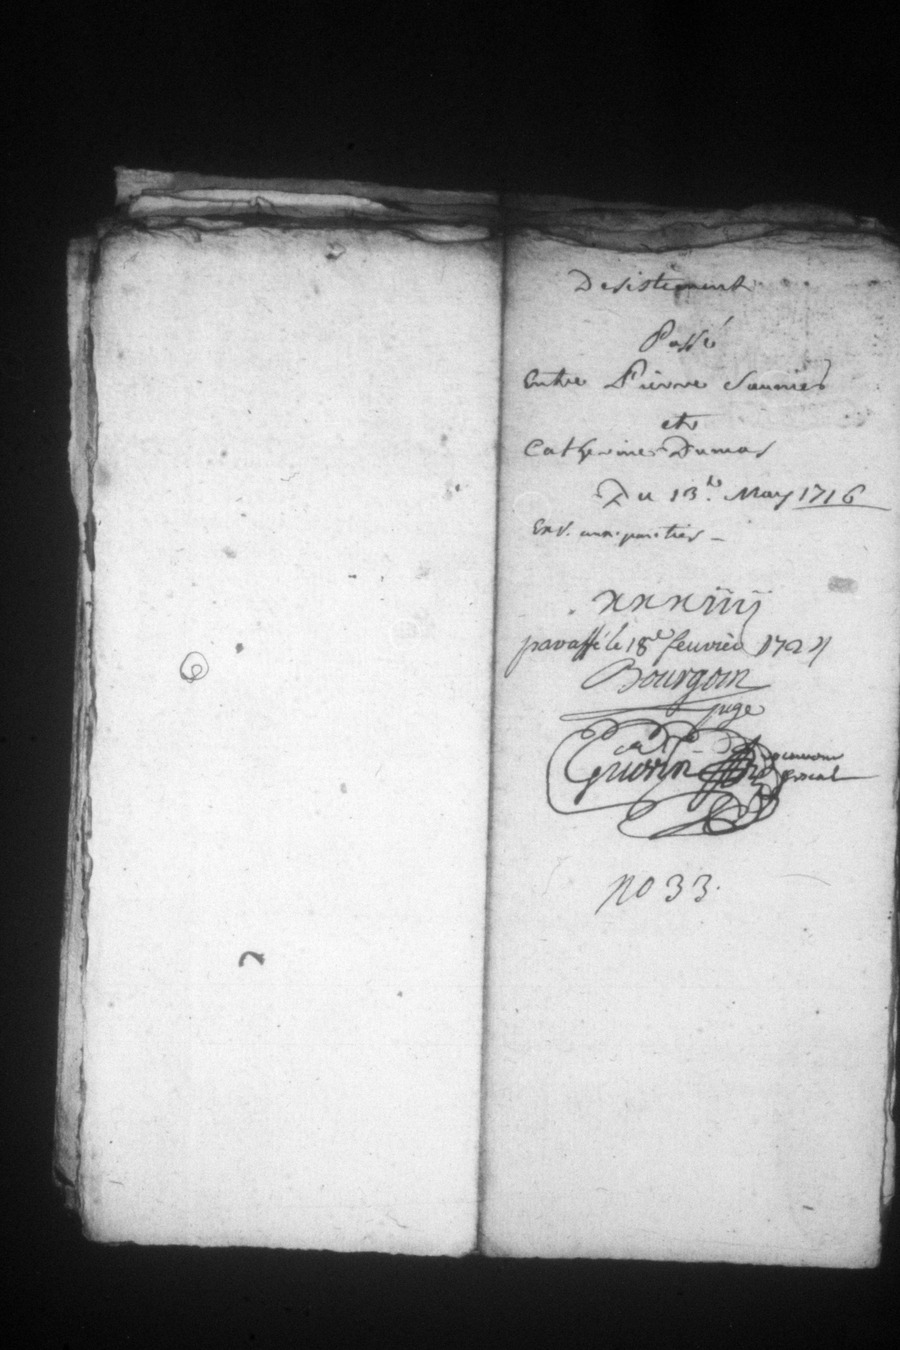 Desistement
Passé
Entre Pierre Saunier
et
Catherine Dumas
Du 13e. May 1716
Exp. aux parties –
xxxiiij
paraffé le 18e feuvrier 1724
Bourgoin
juge
Guerin procureur
fiscal
no 33.